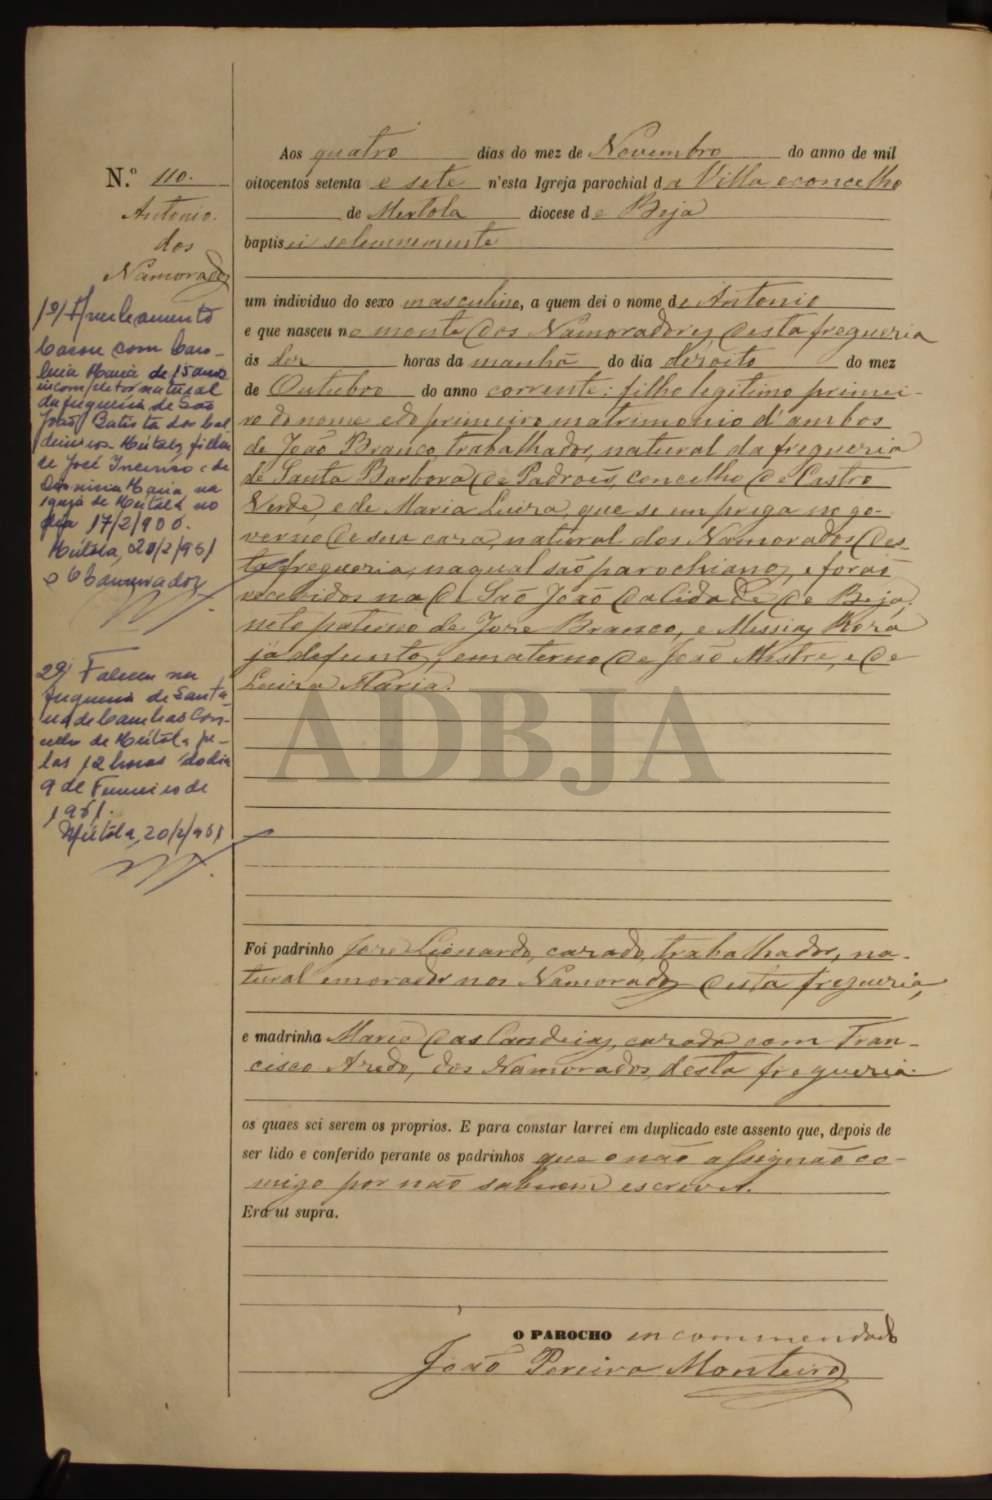 N.º 110.
Antonio.
dos
Namorados
1º Averbamento
Casou com Caro-
lina Maria de 15 anos
incompletos natural
da freguesia de São
João Batista dos Cal-
deireiros Mértola, filha
de José Inacio e de
Maria, na
igreja de Mértola no
dia 17/2/900.
Mértola, 20/2/961
O Conservador
2º Faleceu na
freguesia de Santa-
na de Cambas Con-
celho de Mértola pe-
las 12 horas do dia
9 de Fevereiro de
1961.
Mértola, 20/2/961
Aos quatro dias do mez de Novembro do anno de mil
oitocentos setenta e sete n'esta Igreja parochial da Villa e concelho
de Mertola diocese de Beja
baptisei solemnemente
um individuo do sexo masculino, a quem dei o nome de Antonio
e que nasceu no monte dos Namorados, desta fregueria
ás dez horas da manhã do dia dezoito do mez
de Outubro do anno corrente; filho legitimo primei-
ro do nome e do primeiro matrimonio d'ambos
de João Branco, trabalhador, natural da fregueria
de Santa Barbora de Padrões, concelho de Castro
Verde, e de Maria Luiza, que se emprega no go-
verno de sua caza, natural dos Namorados des-
ta fregueria, na qual são parochianos, e forão
recebidos na de São João da Cidade de Beja;
neto paterno de Joze Branco, e Messias Roza
já defuntos, e materno de João Mestre, e de
Luiza Maria.
ADBJA
Foi padrinho Joze Lionardo, cazado, trabalhador, na-
tural e morador nos Namorados desta fregueria,
e madrinha Maria das Candeias, cazada com Fran-
cisco, dos Namorados, desta fregueria.
os quaes sei serem os proprios. E para constar larrei em duplicado este assento que, depois de
ser lido e conferido perante os padrinhos que o não assignão co-
migo por não saberem escrever.
Era ut supra.
O PAROCHO encommendado
João Pereira Monteiro